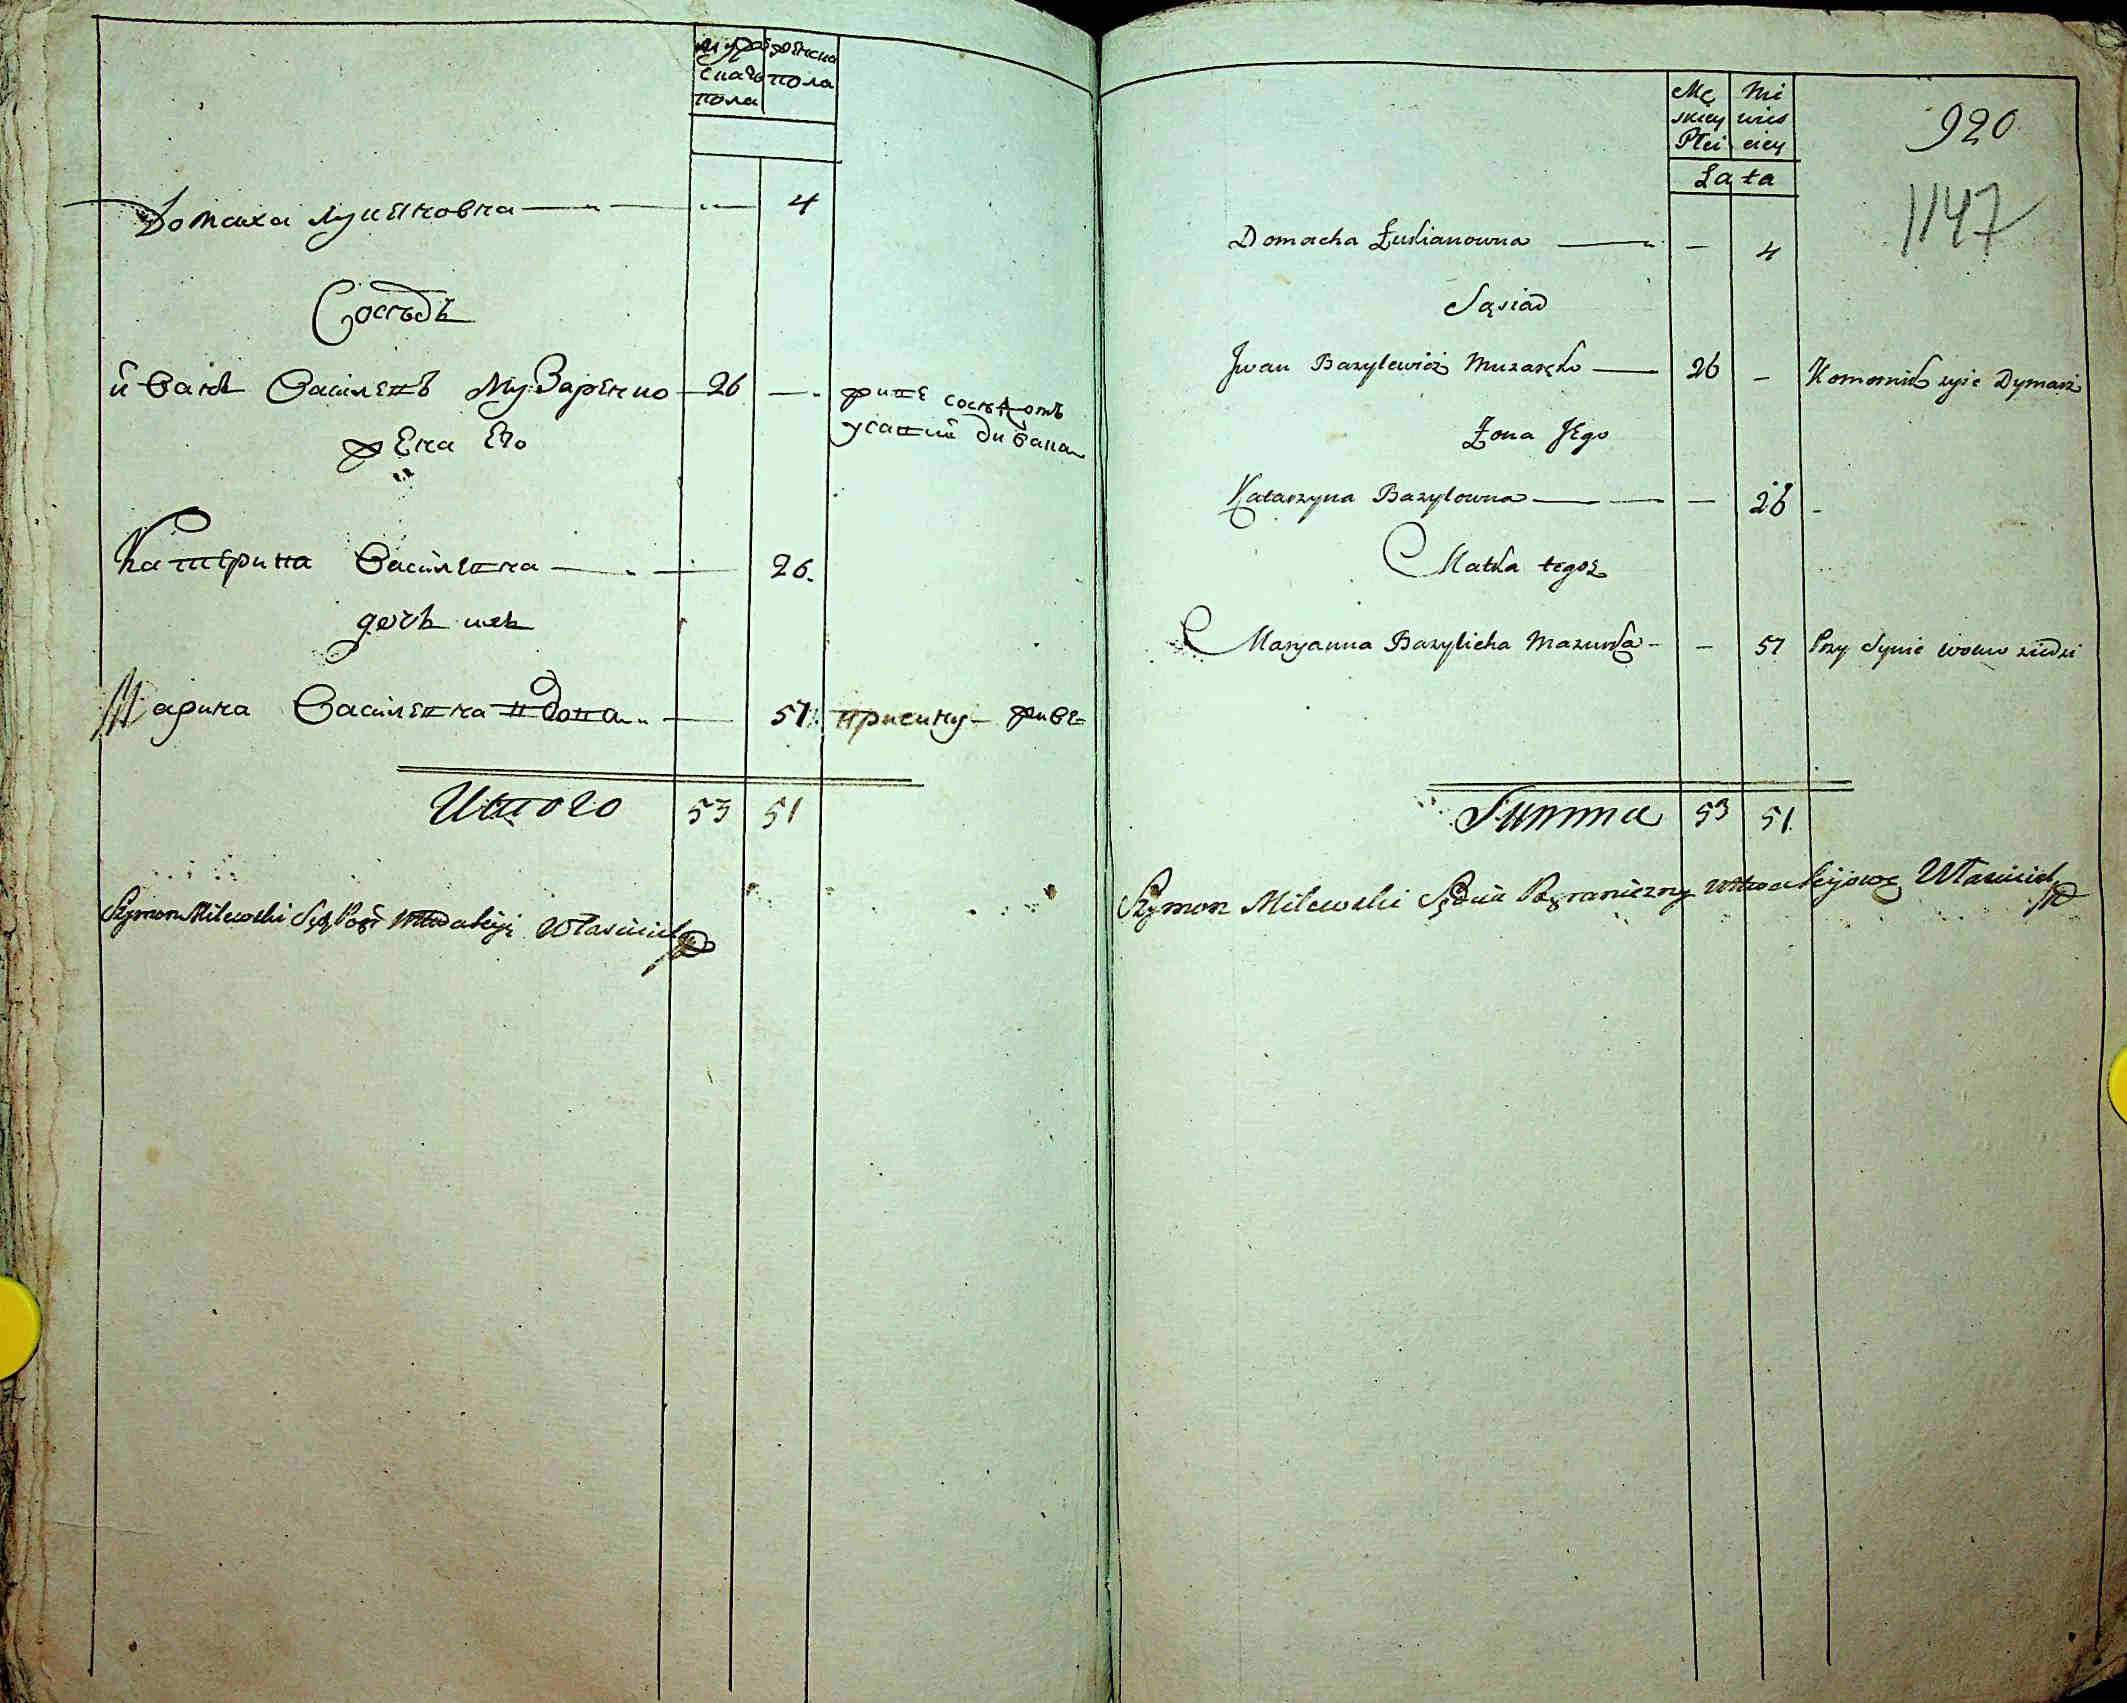 мужескаго пола
женска пола
Домаха Лукенковна 4
Сосѣдъ
Иванъ Василевъ Музаренко 26
живе сосѣдомъ
у
жена Его
Катерина Василевна 26.
Марина Василевна вдова 57.
при сину живе
Итого 53 51
Szymon Milewski Właściciel
Mę Nie
skiey wies
Płci ciey
920
Lata
1147
Domacha Łukianowna — 4
Sąsiad
Jwan Bazylewicz Muzaręko 26 —
Komornik żyie
Żona Jego
Katarzyna Bazylowna — 26
Matka tegoż
Maryanna Bazylicha Mazurka — 57
Przy Synie wdowa siedzi
Summa 53 51
Szymon Milewski Sędzia Pograniczny Właściciel